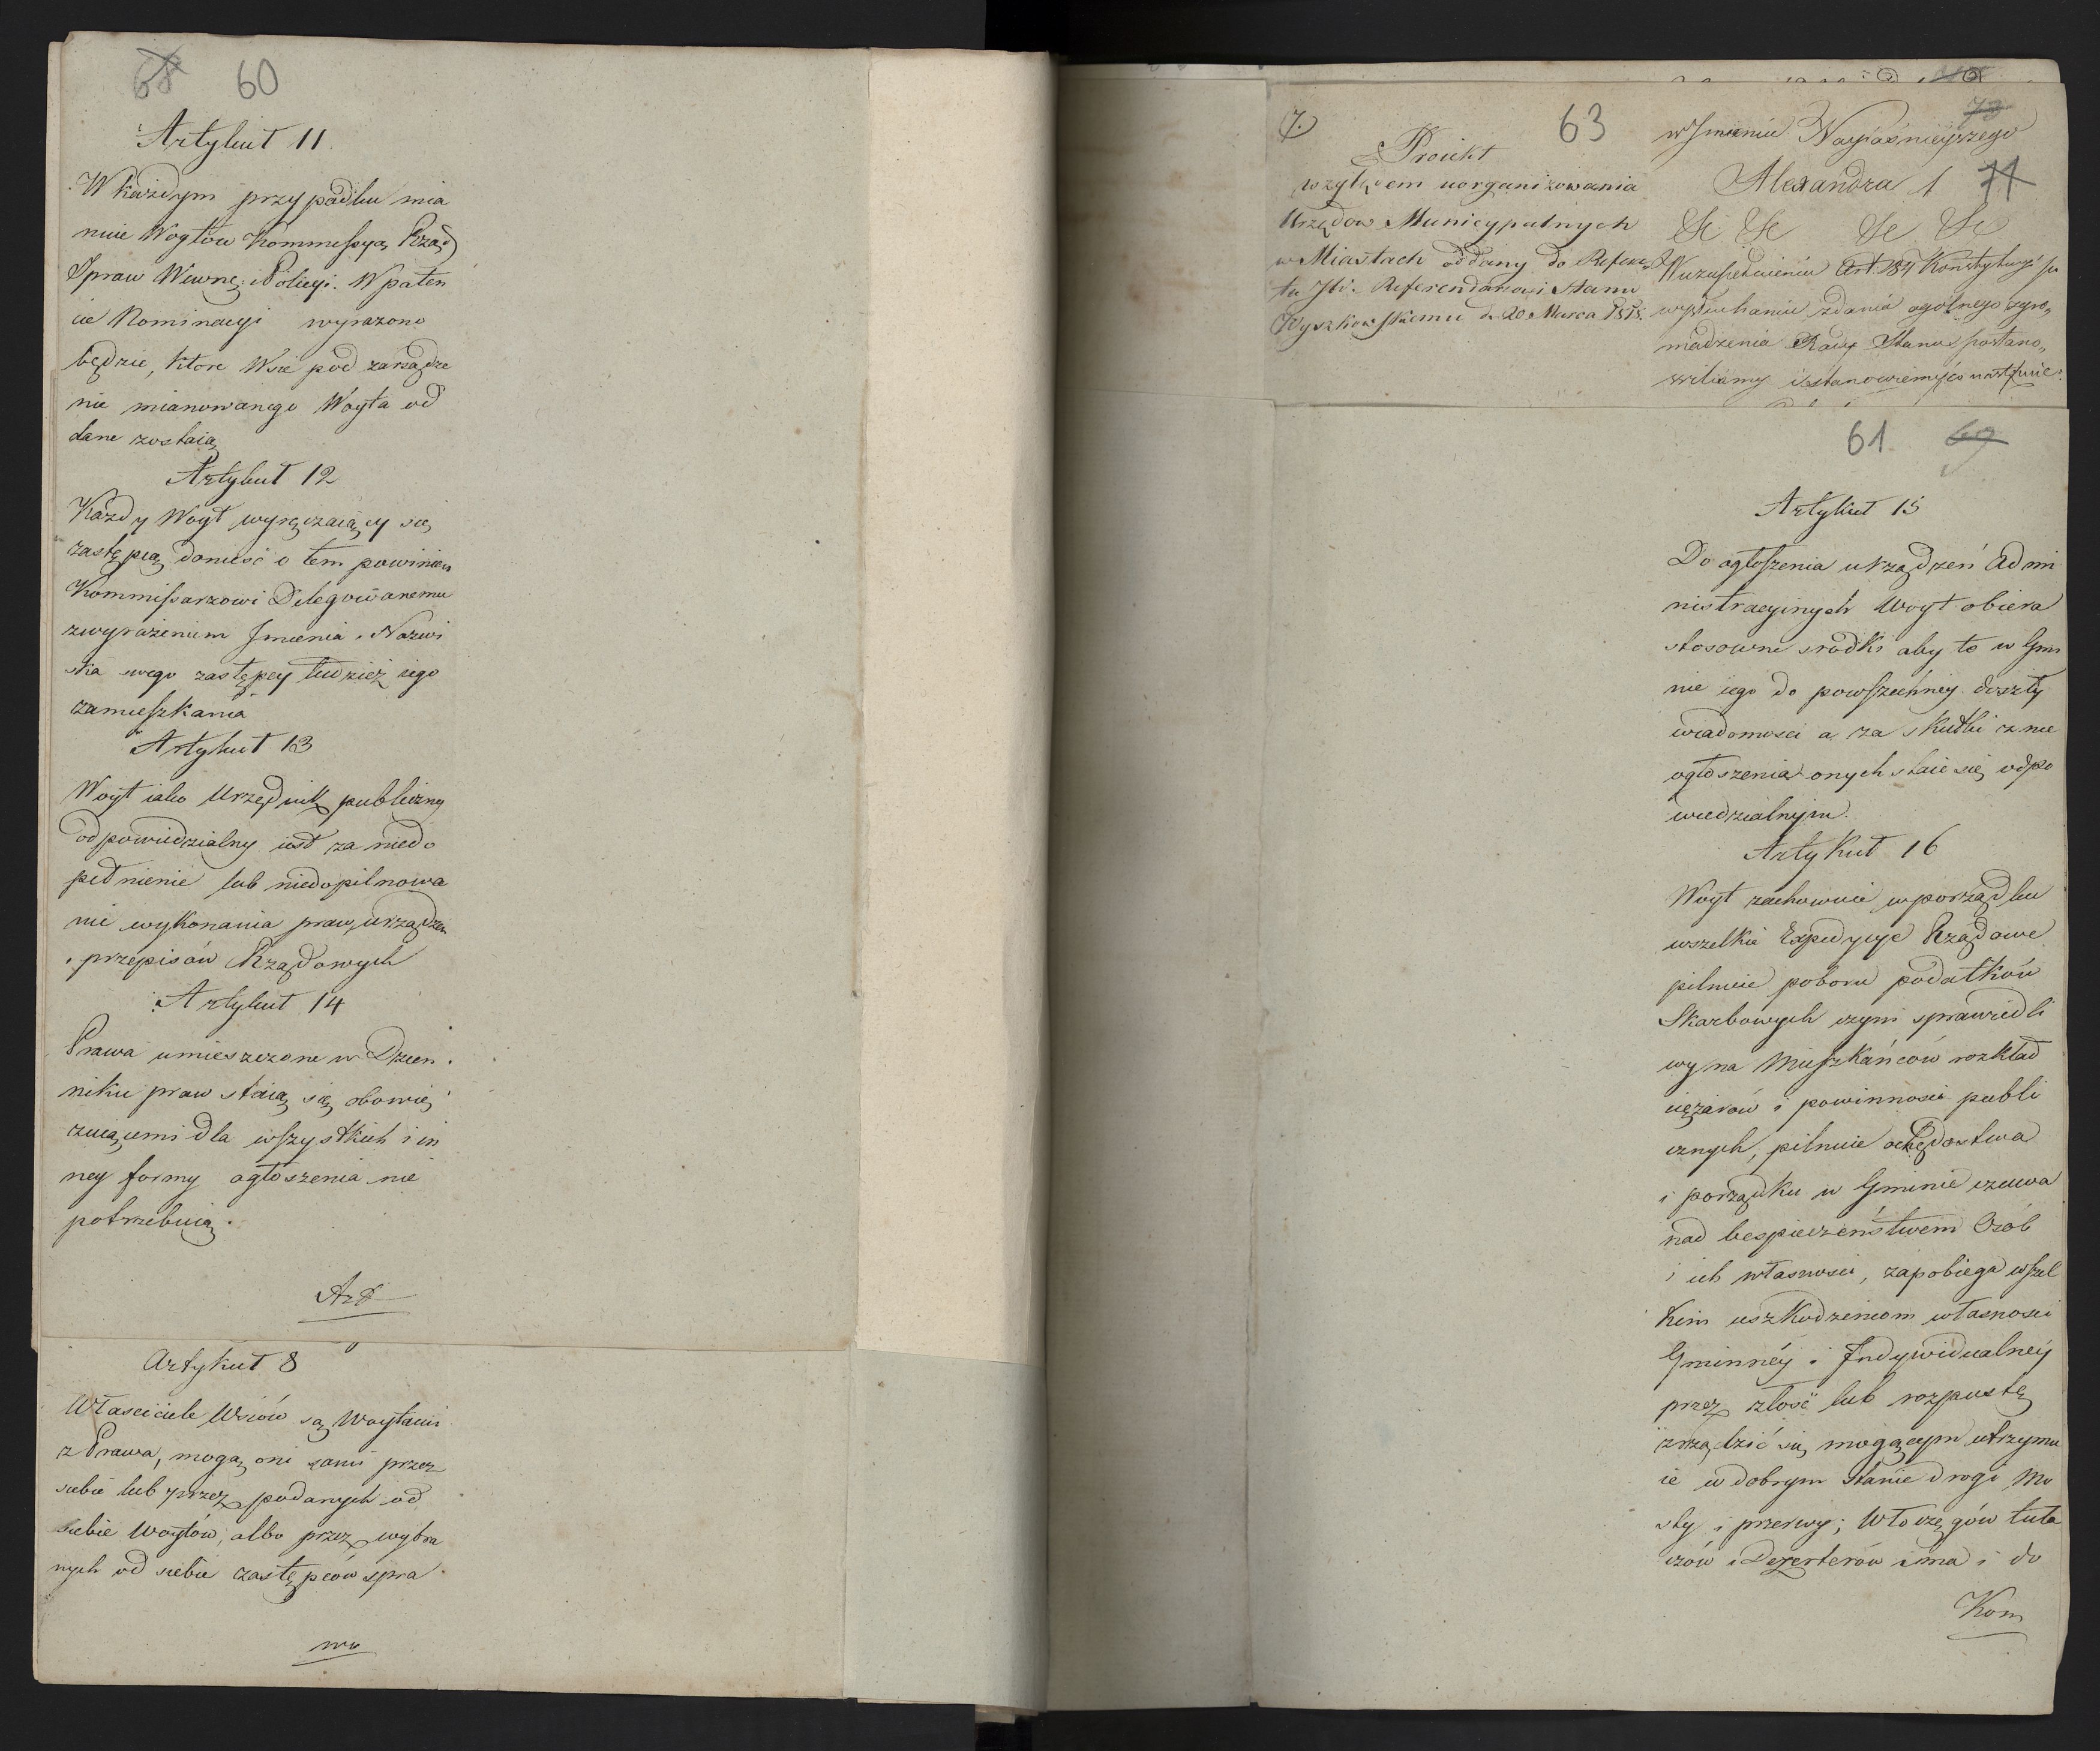 68 60
Artykuł 11
W każdym przypadku mia
nuie Wogtów Kommissya Rząd
Spraw Wewnę: i Policyi. W paten
cie Nominacyi wyrazono
będzie, ktore Wsie pod zarządze
nie mianowanego Woyta od
dane zostaią
Artykuł 12
Każdy Woyt wyręczaiący się
zastępcą donieść o tem powinien
Kommissarzowi Delegowanemu
z wyrażeniem Imienia i Nazwi
ska swego zastępcy tudzież iego
zamieszkania
Artykuł 13
Woyt iako Urzędnik publiczny
odpowiedzialny iest za niedo
pełnienie lub niedopilnowa
nie wykonania praw, urządzen
i przepisów Rządowych
Artykuł 14
Prawa umieszczone w Dzien
niku praw staią się obowię
zuiącemi dla wszystkich i in
ney formy ogłoszenia nie
potrzebuią.
Art
Artykuł 8
Własciciele Wsiów są Woytami
z Prawa, mogą oni sami przez
siebie lub przez podanych od
siebie Woytów, albo przez wybra
nych od siebie zastępców spra
wo
7.
63
Proiekt
względem uorganizowania
Urzędow Municypalnych
w Miastach oddany do Refera
tu JW. Referendarzowi Stanu
Wyszkowskiemu d. 20 Marca 1818.
73
w Imieniu Nayiaśnieyszego
Alexandra 1 71
&c &c &c &c
W uzupełnieniu Art: 184 Konstytucyi po
wysłuchaniu zdania ogólnego zgro„
madzenia Rady Stanu postano„
wiliśmy i stanowiemy co następuie:
61 69
Artykuł 15
Do ogłoszenia urządzeń Admi
nistracyinych Woyt obiera
stosowne srodki aby to w Gmi
nie iego do powszechney doszły
wiadomosci a za skutki z nie
ogłoszenia onych staie się odpo
wiedzialnym.
Artykuł 16
Woyt zachowuie w porządku
wszelkie Expedycye Rządowe
pilnuie poboru podatków
Skarbowych czyni sprawiedli
wy na Mieszkańców rozkład
ciężarów i powinności publi
cznych, pilnuie ochędostwa
i porządku w Gminie czuwa
nad bespieczeństwem Osób
i ich własnosci, zapobiega wszel
kim uszkodzeniom własnosci
Gminnéy i Indywidualnéy
przez złość lub rozpustę
zrządzić się mogącym utrzymu
ie w dobrym stanie drogi, mo
sty i przerwy; Włoczęgów tuła
czów i Dezerterów ima i do
Kom